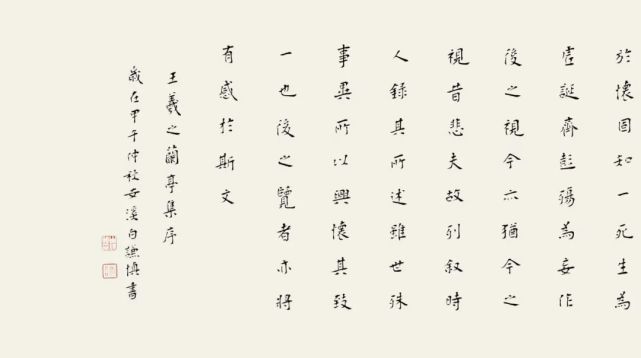 於懷固知一死生為
虛誕齊彭殤為妄作
後之視今亦猶今之
視昔悲夫故列叙時
人錄其所述雖世殊
事異所以興懷其致
一也後之覽者亦將
有感於斯文
王羲之蘭亭集序
歲在甲午仲秋安溪白謙慎書